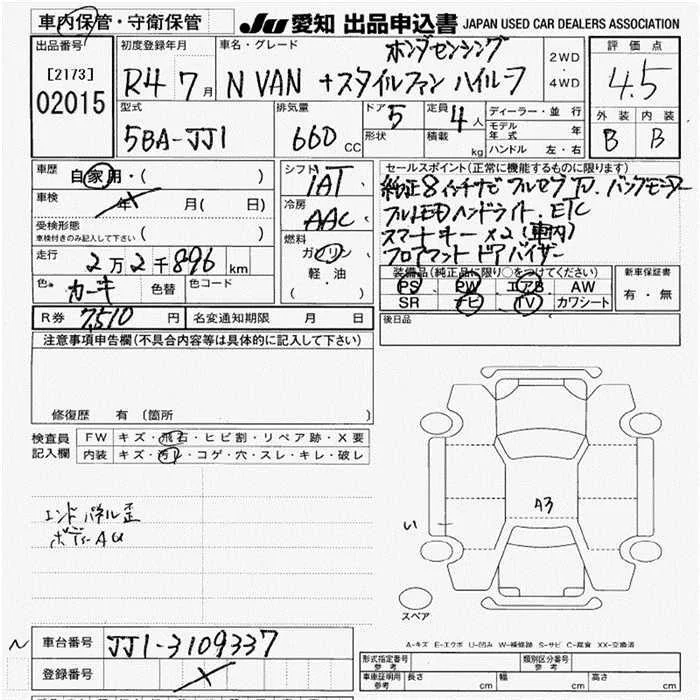 車内保管・守衛保管 JU 愛知 出品申込書 JAPAN USED CAR DEALERS ASSOCIATION
出品番号 初度登録年月 車名・グレード ホンダセンシング 2WD・4WD 評価点
[2173] R4 7月 N VAN +スタイルファン ハイルーフ 4.5
02015
型式 排気量 ドア 5 定員 4人 ディーラー・並行 外装 内装
5BA-JJ1 660 CC 形状 積載 kg モデル年式 年 B B
ハンドル 左・右
車歴 自家用・( ) シフト IAT セールスポイント(正常に機能するものに限ります)
車検 年 月( 日) 冷房 AAC 純正8インチナビ フルセグTV.バックモニター
フルLEDヘッドライト.ETC
受検形態 ( ) 燃料 スマートキー×2(車内)
車検付きのみ記入して下さい ガソリン フロアマット ドアバイザー
走行 2万2千896km 軽・油 装備品(純正品に限り○をつけてください) 新車保証書
色 カーキ 色替 色コード ( ) PS PW エアB AW 有・無
SR ナビ TV カワシート
R券 7,510円 名変通知期限 月 日 後日品
注意事項申告欄(不具合内容等は具体的に記入して下さい)
修復歴 有 〔箇所
検査員 FW キズ・飛石・ヒビ割・リペア跡・X要
記入欄 内装 キズ・汚レ・コゲ・穴・スレ・キレ・破レ
エンドパネル歪
ボディーAU
A3
い
スペア
A-キズ E-エクボ U-凹み W-補修跡 S-サビ C-腐食 XX-交換済
車台番号 JJ1-3109337 形式指定番号 参考 類別区分番号 参考
登録番号 車庫証明用 参考 長さ cm 幅 cm 高さ cm